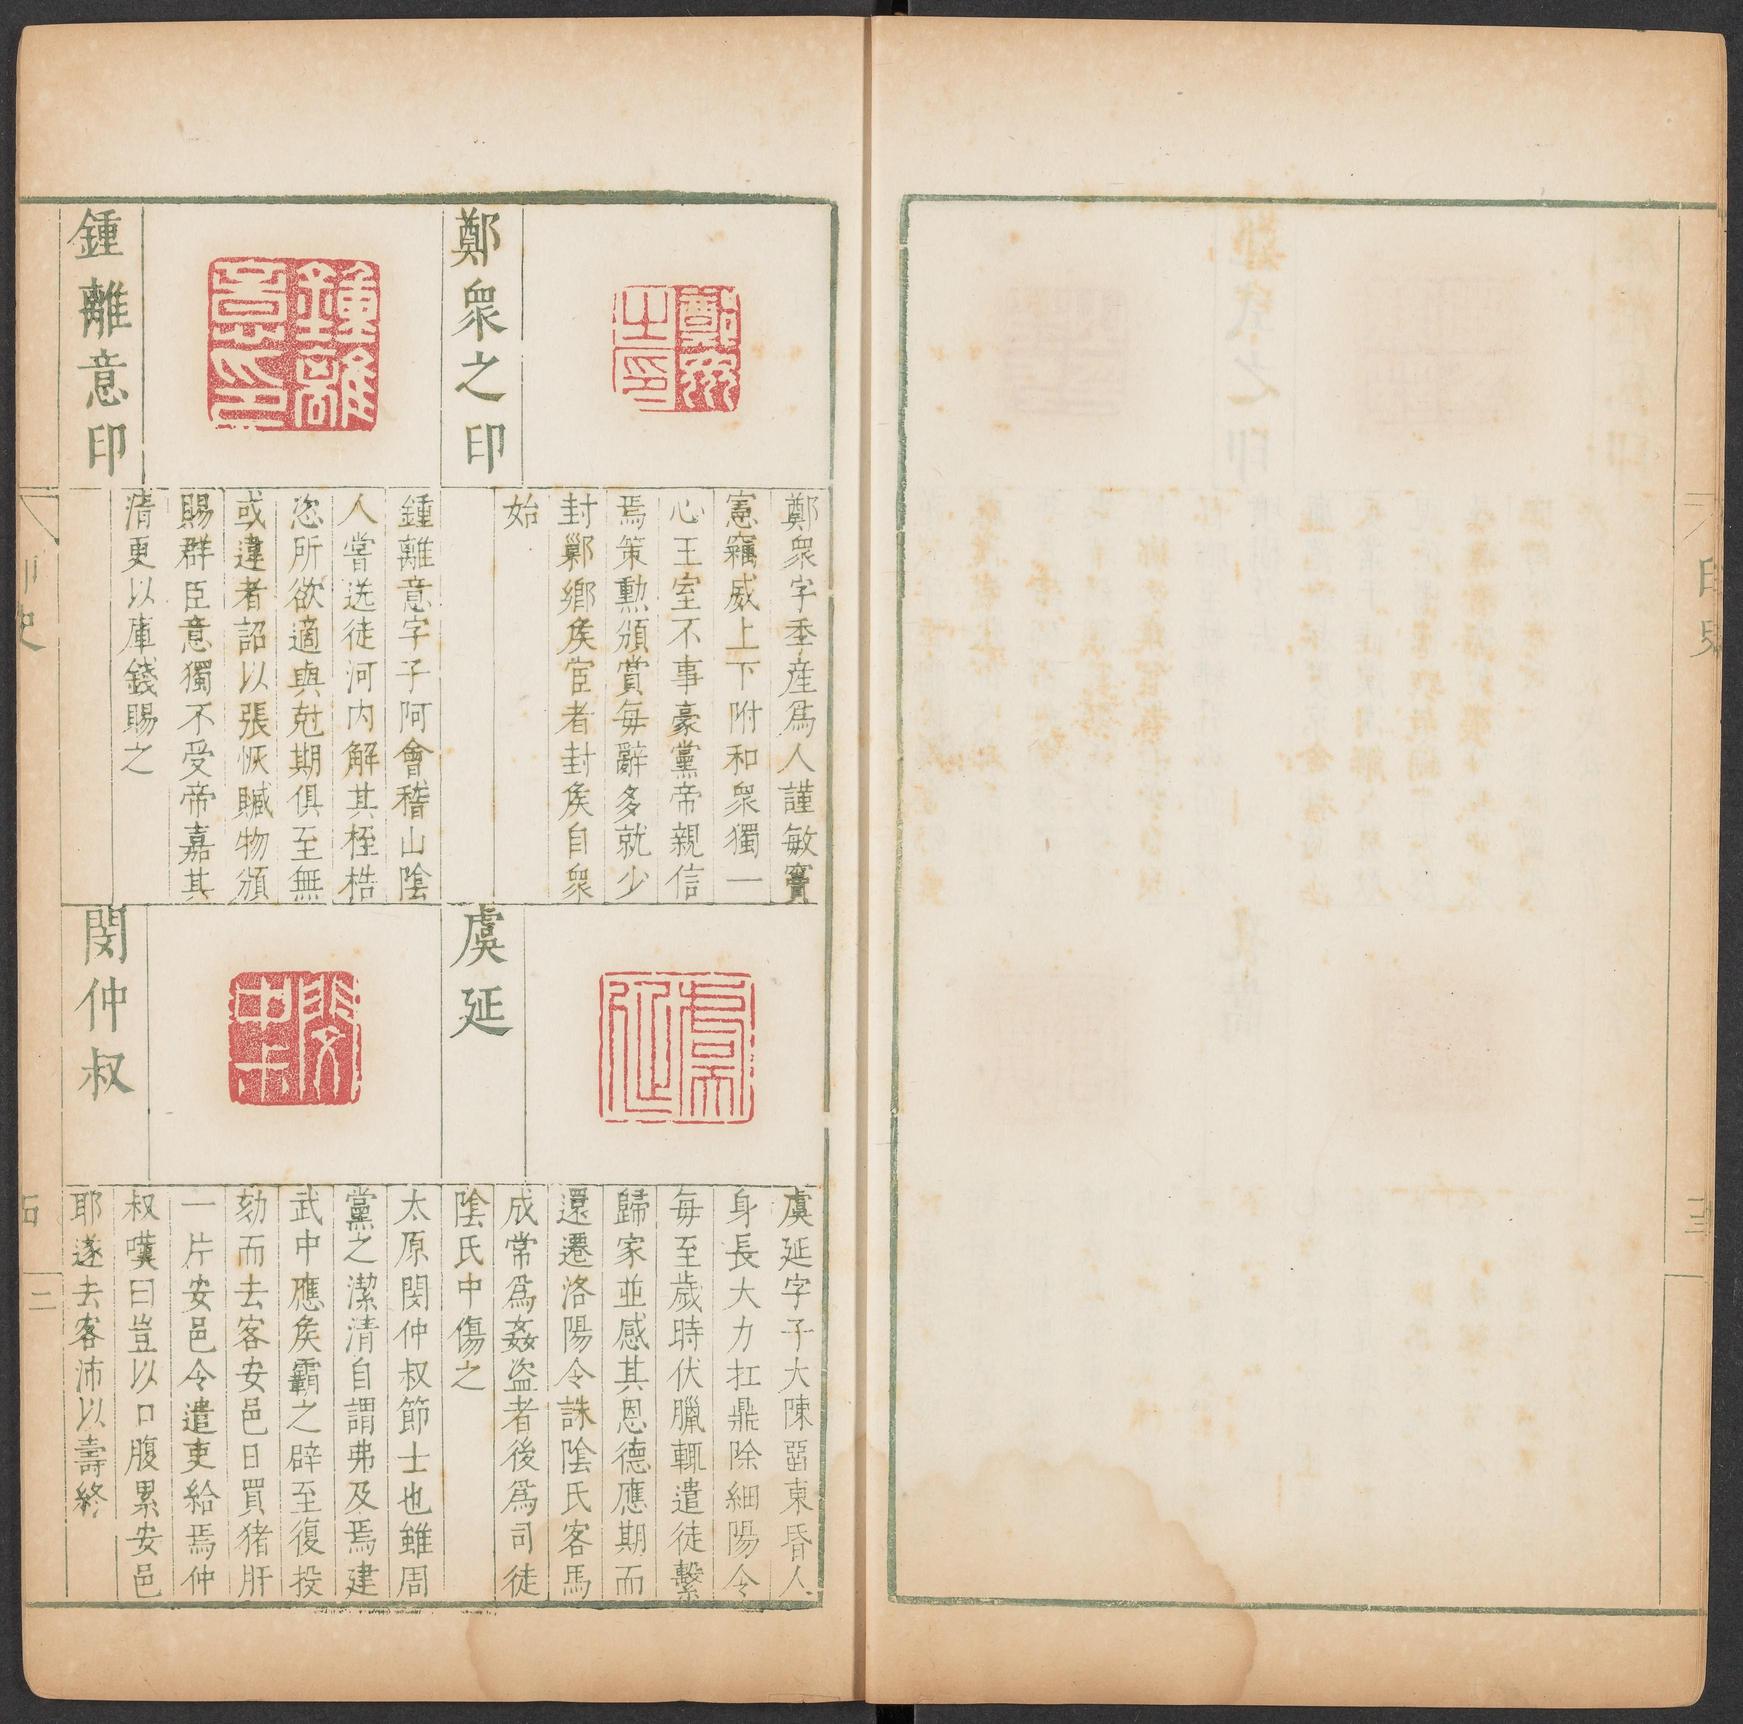 印史
三
鄭衆之印
鄭衆字季產爲人謹敏竇
憲竊威上下附和衆獨一
心王室不事豪黨帝親信
焉策勳頒賞每辭多就少
封鄛鄉矦宦者封矦自衆
始
鍾離意印
鍾離意字子阿會稽山陰
人嘗送徒河内解其桎梏
恣所欲適與尅期俱至無
或違者詔以張恢贓物頒
賜群臣意獨不受帝嘉其
清更以庫錢賜之
虞延
虞延字子大陳畱東昏人
身長大力扛鼎除細陽令
每至歲時伏臘輒遣徒繫
歸家並感其恩德應期而
還遷洛陽令誅陰氏客馬
成常爲姦盗者後爲司徒
陰氏中傷之
閔仲叔
太原閔仲叔節士也雖周
黨之潔清自謂弗及焉建
武中應矦霸之辟至復投
劾而去客安邑日買猪肝
一片安邑令遣吏給焉仲
叔嘆曰豈以口腹累安邑
耶遂去客沛以壽終
史
三